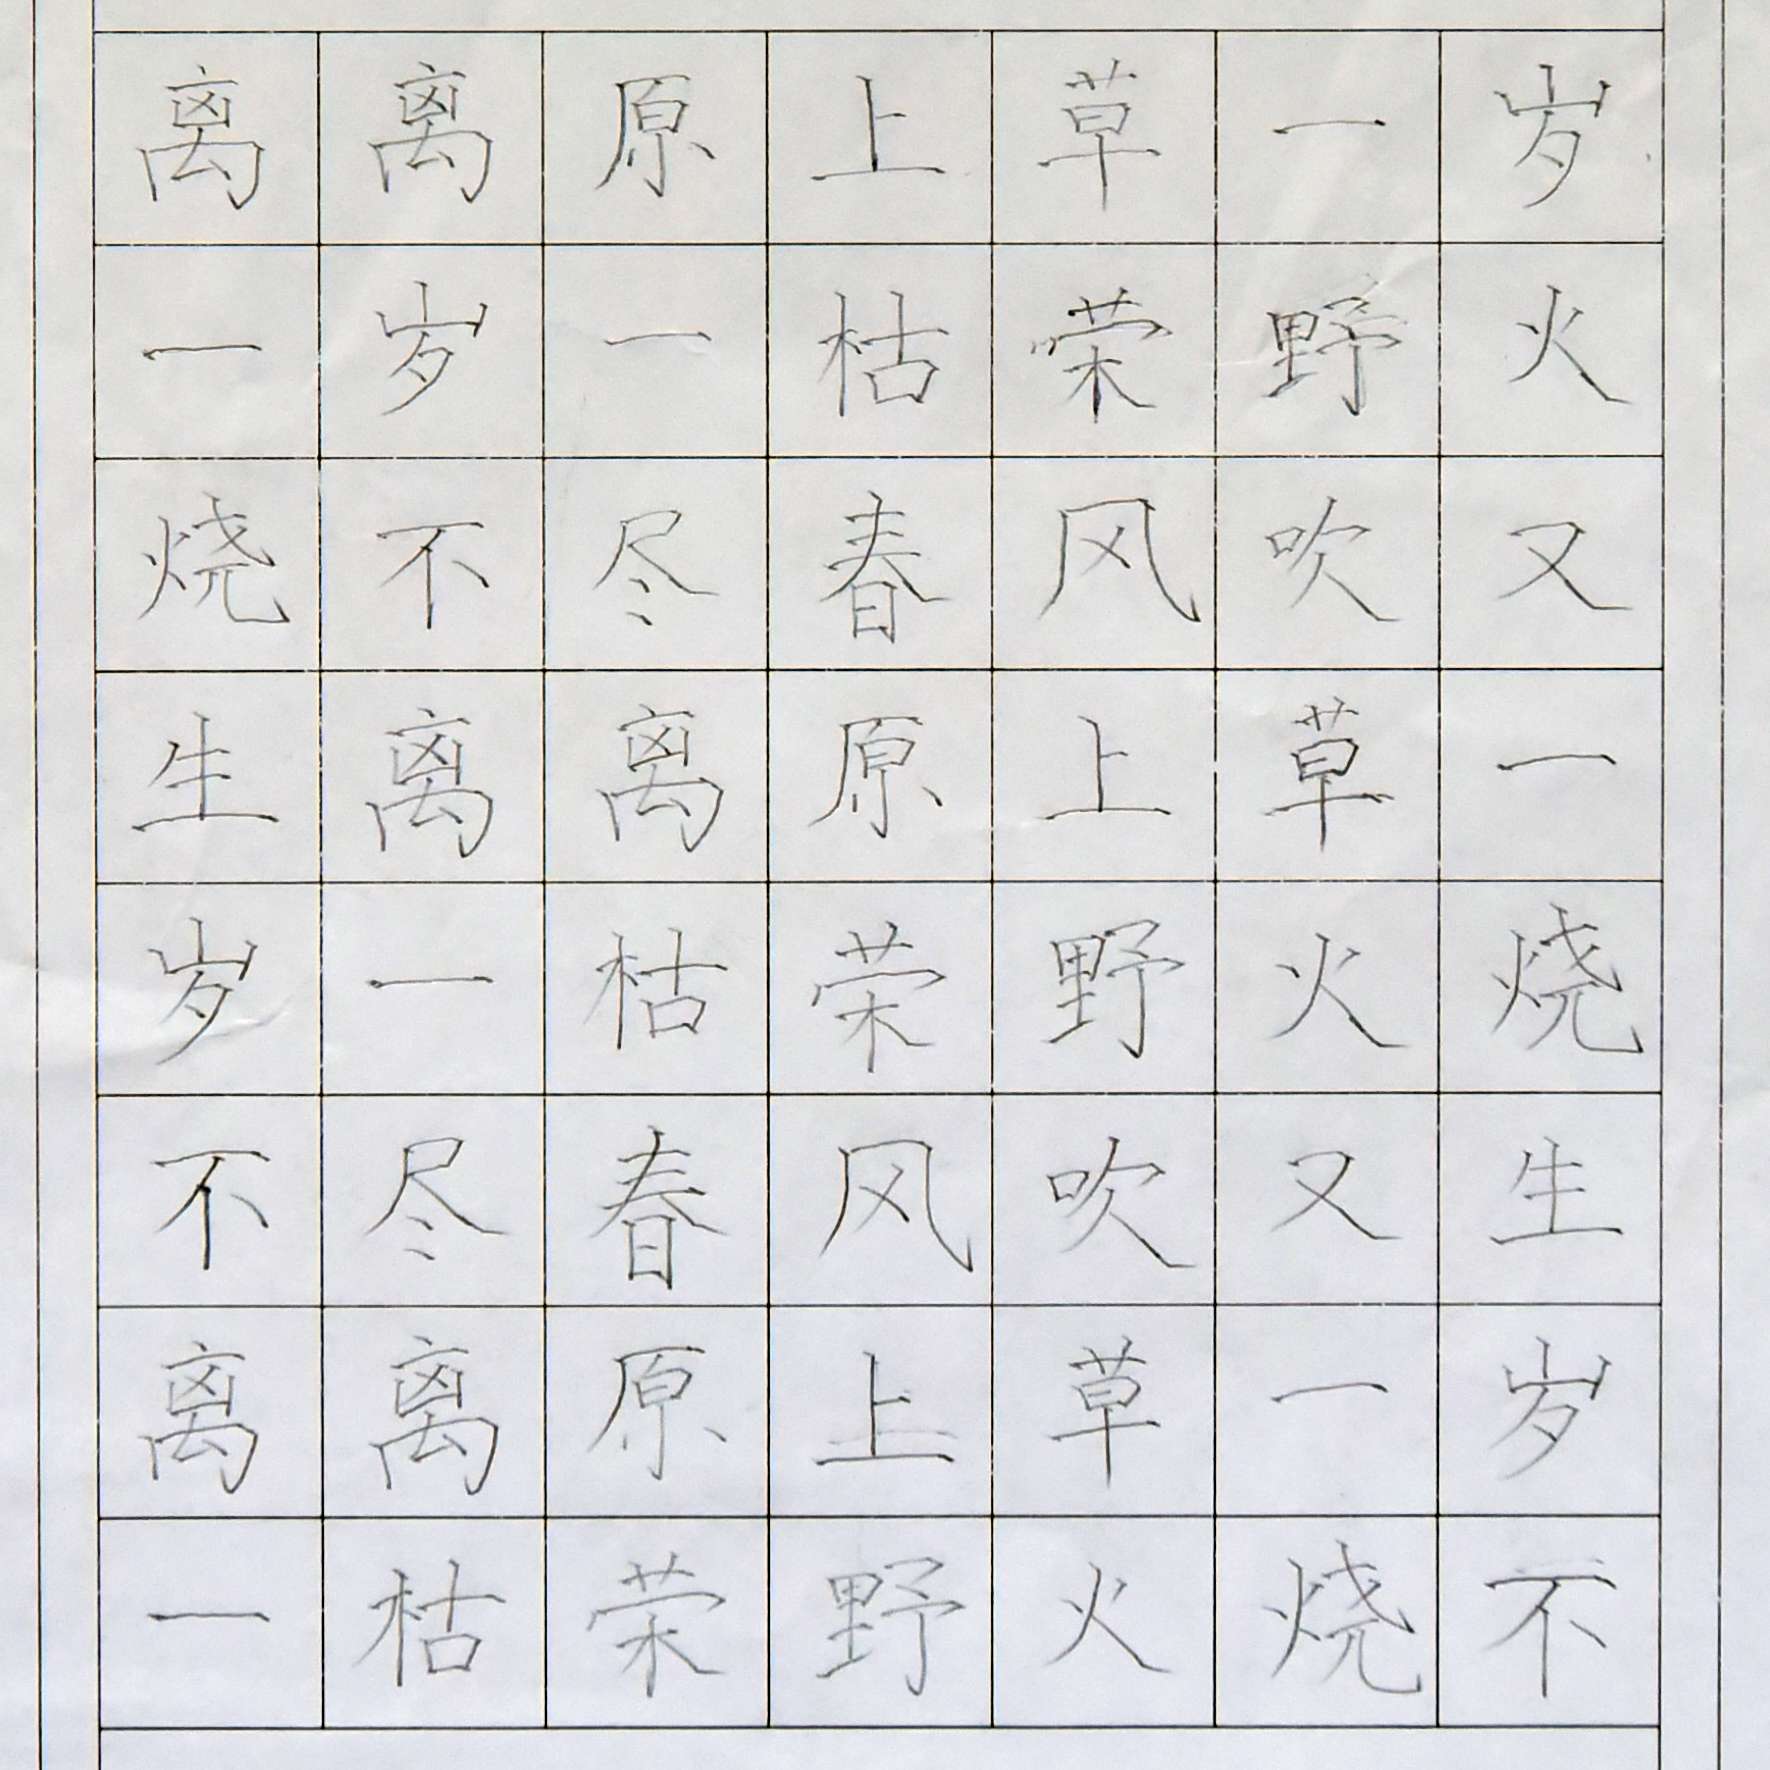 离离原上草一岁
一岁一枯荣野火
烧不尽春风吹又
生离离原上草一
岁一枯荣野火烧
不尽春风吹又生
离离原上草一岁
一枯荣野火烧不